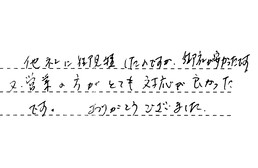 他社に依頼種したんですが、御社が安かったです
又、営業の方がとても対応が良かった
です。ありがとうございました。